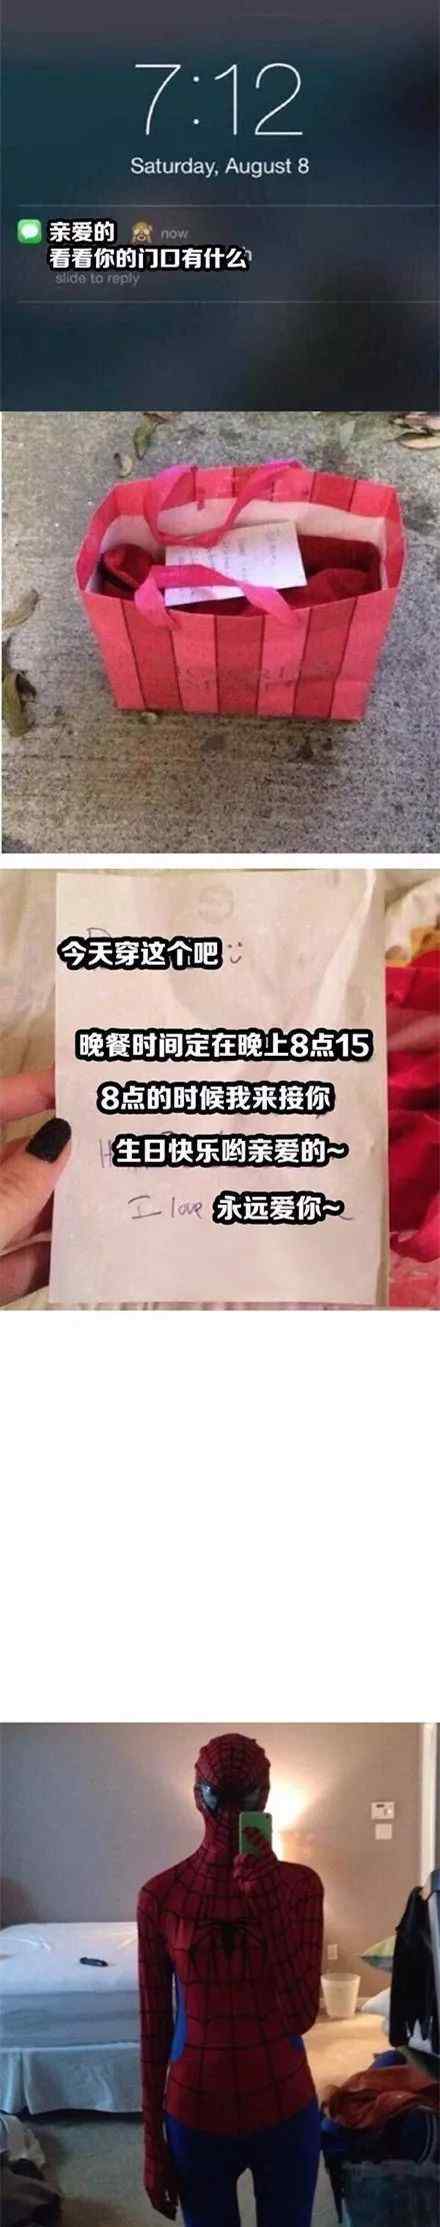 7:12
Saturday, August 8
亲爱的 now
看看你的门口有什么
slide to reply
今天穿这个吧
晚餐时间定在晚上8点15
8点的时候我来接你
生日快乐哟亲爱的~
I love 永远爱你~